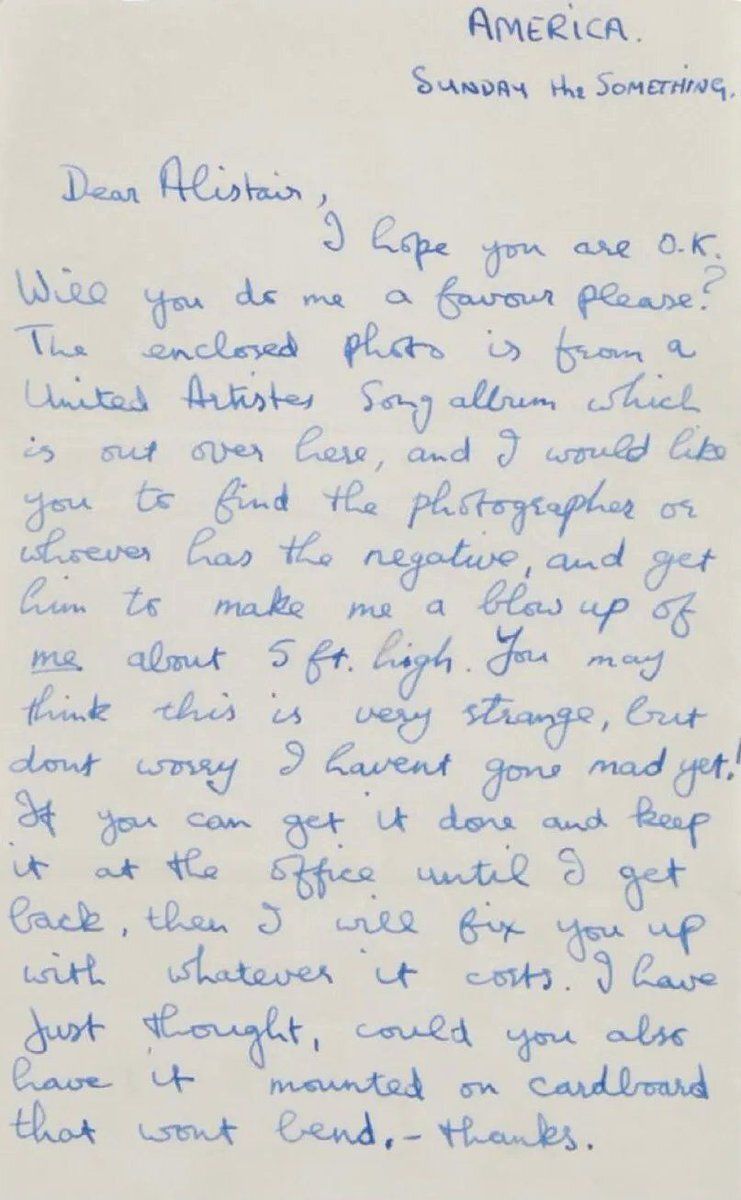 AMERICA.
SUNDAY the SOMETHING.
Dear Alistair,
I hope you are O.K.
Will you do me a favour please?
The enclosed photo is from a
United Artistes Song album which
is out over here, and I would like
you to find the photographer or
whoever has the negative, and get
him to make me a blow up of
me about 5 ft. high. You may
think this is very strange, but
dont worry I havent gone mad yet!
If you can get it done and keep
it at the office until I get
back, then I will fix you up
with whatever it costs. I have
just thought, could you also
have it mounted on cardboard
that wont bend. – thanks.